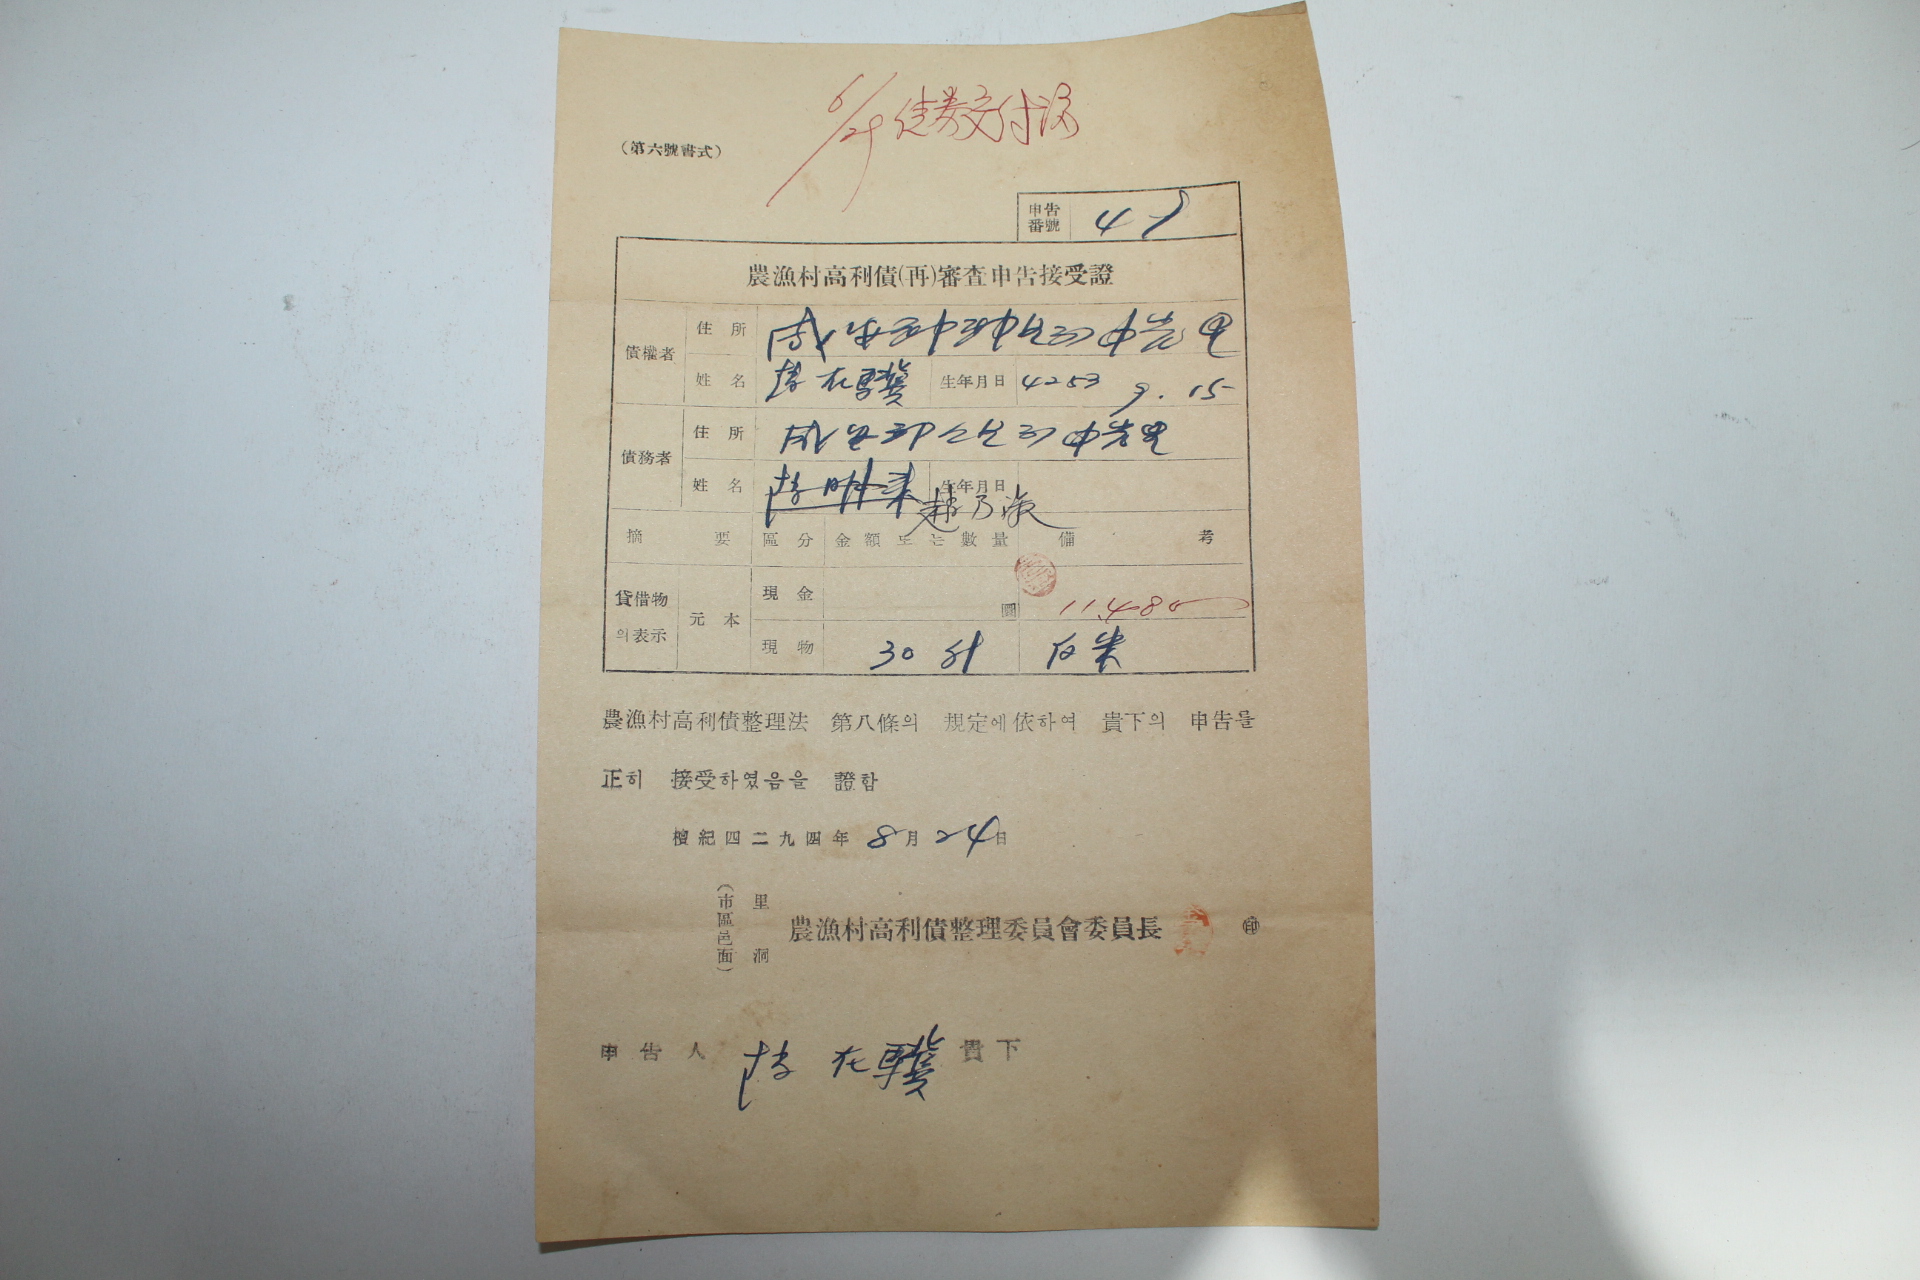 6/29 債券交付済
(第六號書式)
申告番號 49
農漁村高利債(再)審査申告接受證
債權者 住所
姓名 趙在驥 生年月日 4253 9.15
債務者 住所
姓名 生年月日
趙乃濱
摘要 區分 金額또는數量 備考
貸借物의表示 元本 現金 圜 11,480
現物 30 叺 白米
農漁村高利債整理法 第八條의 規定에依하여 貴下의 申告를
正히 接受하였음을 證함
檀紀四二九四年 8月 24日
(市區邑面) 里洞 農漁村高利債整理委員會委員長 ㊞
申告人 趙在驥 貴下